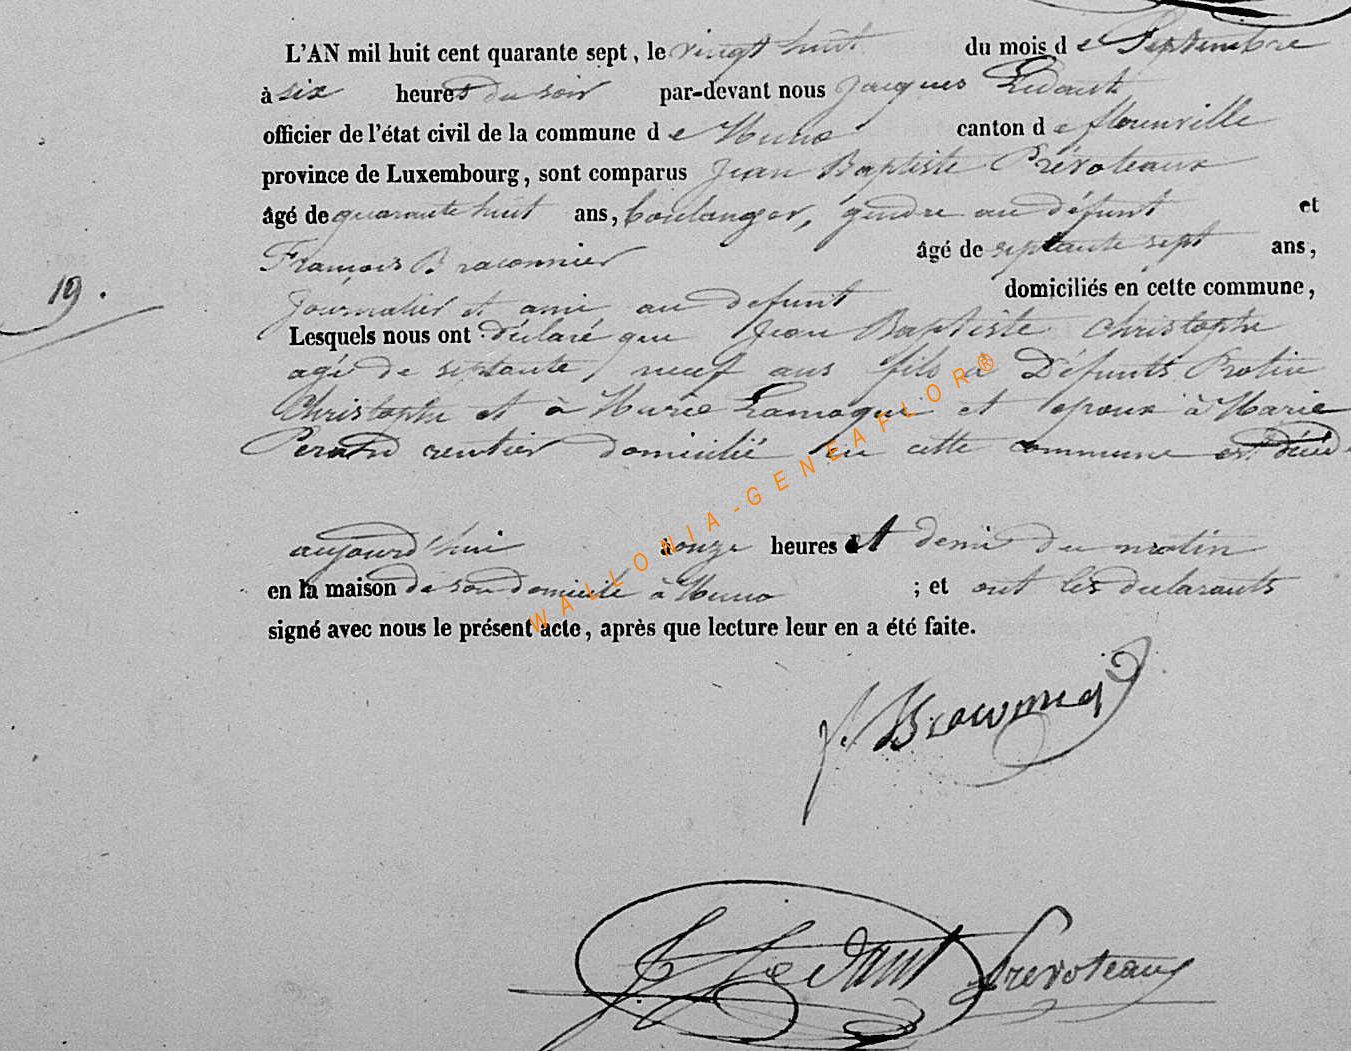 L'AN mil huit cent quarante sept, le vingt huit du mois de Septembre
à six heures du soir par-devant nous Jacques Ledant
officier de l'état civil de la commune de Muno canton de florenville
province de Luxembourg, sont comparus Jean Baptiste Prévoteaux
âgé de quarante huit ans, boulanger, gendre au défunt et
François Braconnier âgé de septante sept ans,
journalier et ami au defunt domiciliés en cette commune,
19.
Lesquels nous ont déclaré que Jean Baptiste Christophe
agé de septante neuf ans fils à Défunts
Christophe et à Marie Lamoque et epoux à Marie
rentier domicilié en cette commune est décédé
aujourd'hui à onze heures et demi du matin
en la maison de son domicile à Muno ; et ont les declarants
signé avec nous le présent acte, après que lecture leur en a été faite.
WALLONIA-GENEAFLOR®
f. Braconnier
J Ledant Prevoteaux